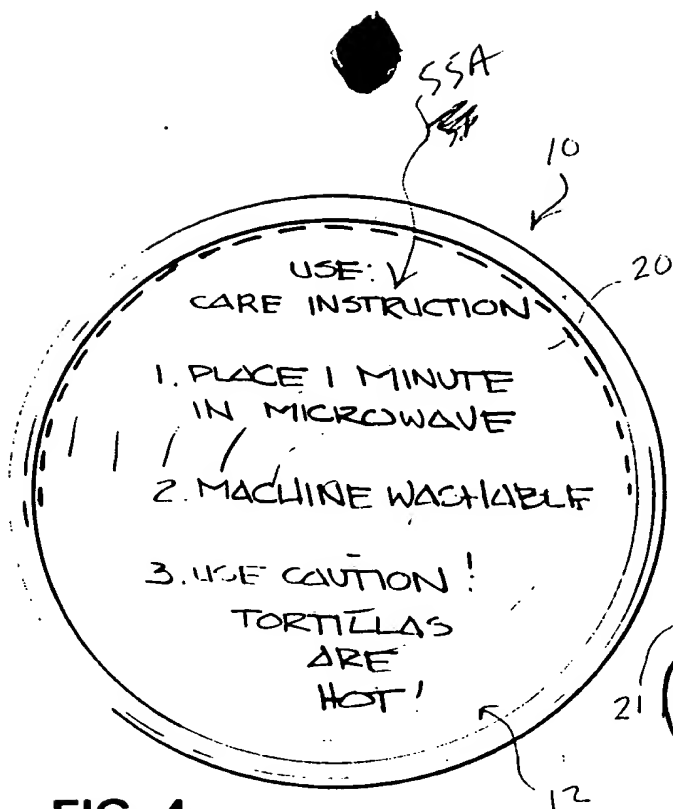 55A
10
20
USE:
CARE INSTRUCTION
1. PLACE 1 MINUTE
IN MICROWAVE
2. MACHINE WASHABLE
3. USE CAUTION!
TORTILLAS
ARE
HOT!
21
12
FIG. 4